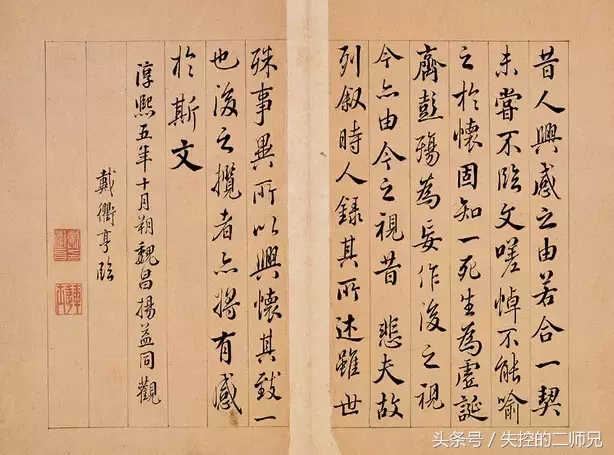 昔人興感之由若合一契
未嘗不臨文嗟悼不能喻
之於懷固知一死生為虛誕
齊彭殤為妄作後之視
今亦由今之視昔 悲夫故
列叙時人錄其所述雖世
殊事異所以興懷其致一
也後之攬者亦將有感
於斯文
淳熙五年十月朔魏昌揚益同觀
戴衢亨臨
头条号/失控的二师兄